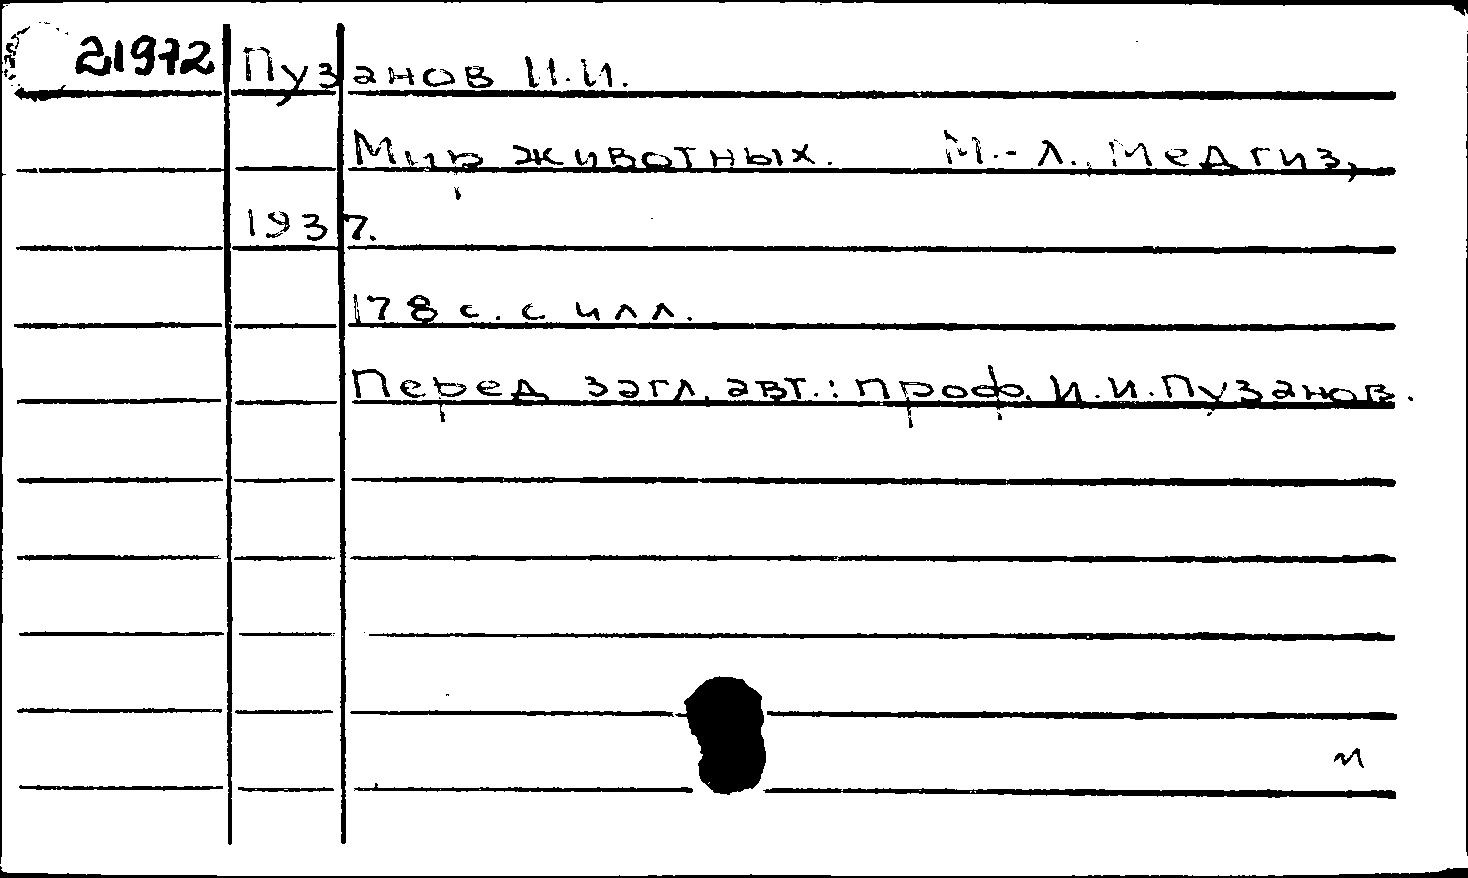 21972 Пузанов И.И.
Мир животных. М.-Л., Медгиз,
1937.
178 с. с илл.
Перед загл. авт.: проф. И.И. Пузанов.
м